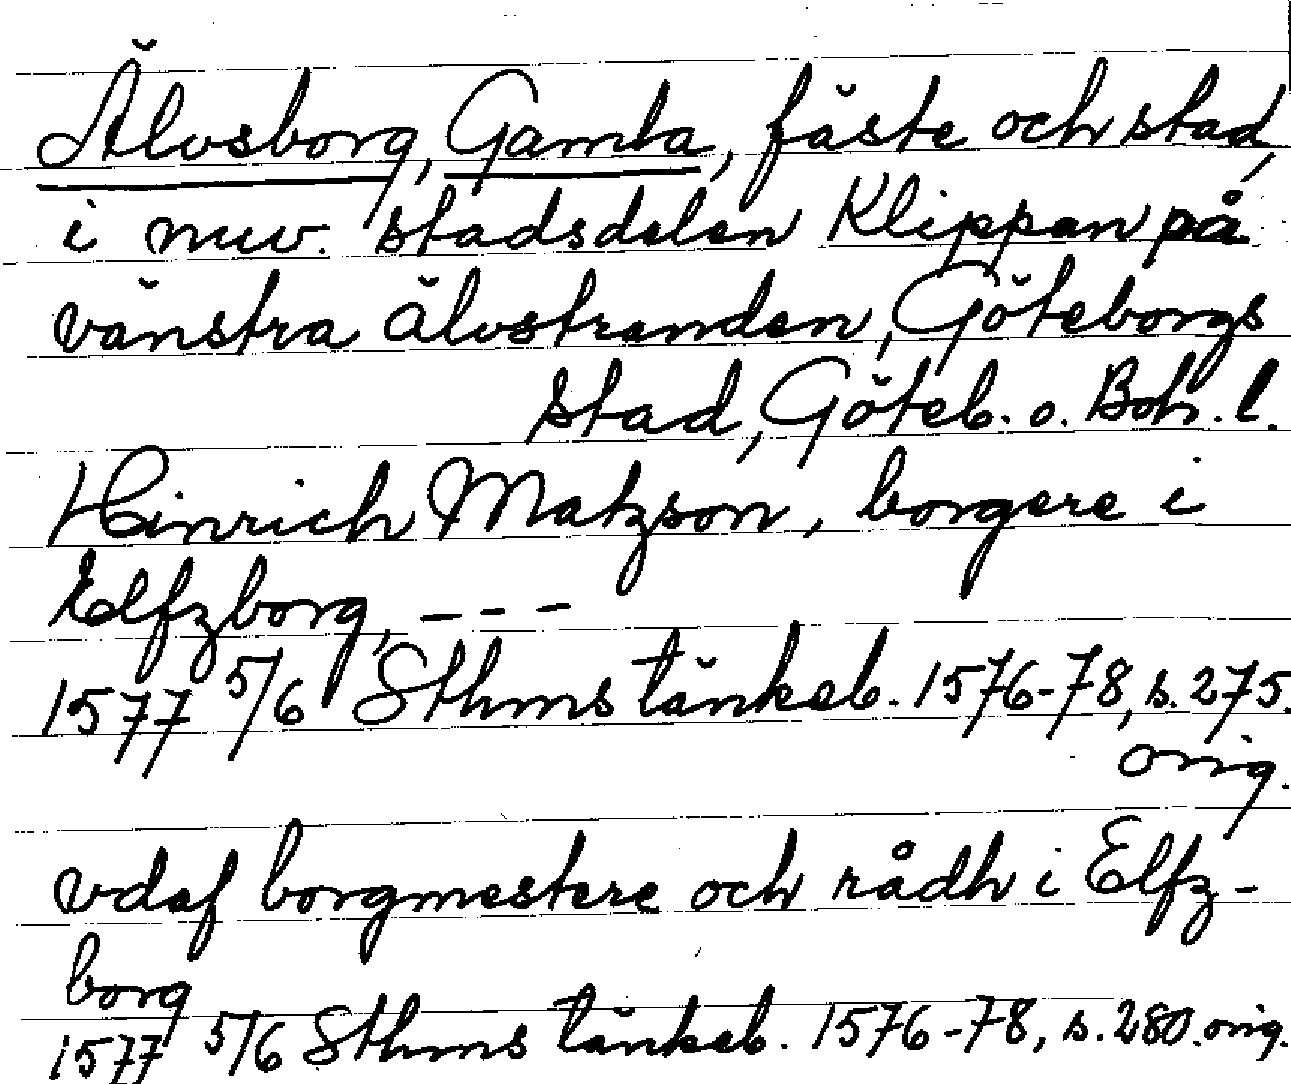 Älvsborg, Gamla, fäste och stad,
i nuv. stadsdelen Klippan på
vänstra älvstranden, Göteborgs
stad, Göteb. o. Boh. l.
Hinrich Matzson, borgere i
Elfzborg, ---
1577 5/6 Sthms tänkeb. 1576-78, s. 275.
orig.
vdaf borgmestere och rådh i Elfz-
borg
1577 5/6 Sthms tänkeb. 1576-78, s. 280. orig.